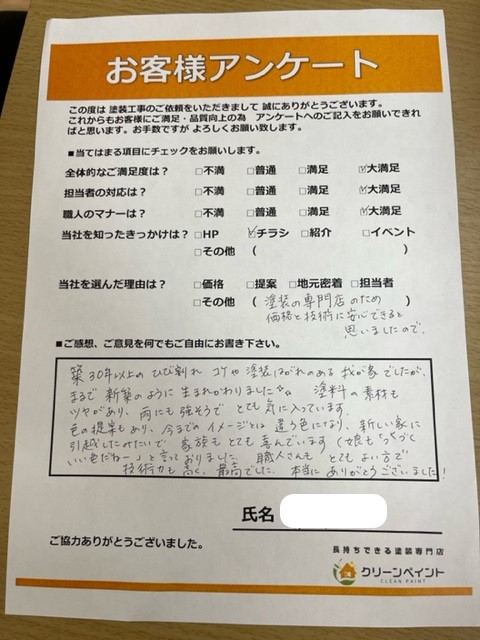 お客様アンケート
この度は 塗装工事のご依頼をいただきまして 誠にありがとうございます。
これからもお客様にご満足・品質向上の為　アンケートへのご記入をお願いできれ
ばと思います。お手数ですが よろしくお願い致します。
■当てはまる項目にチェックをお願いします。
全体的なご満足度は？ □不満 □普通 □満足 ☑大満足
担当者の対応は？ □不満 □普通 □満足 ☑大満足
職人のマナーは？ □不満 □普通 □満足 ☑大満足
当社を知ったきっかけは？ □HP ☑チラシ □紹介 □イベント
□その他 （ ）
当社を選んだ理由は？ □価格 □提案 □地元密着 □担当者
□その他 （ 塗装の専門店のため ）
価格と技術に安心できると
思いましたので。
■ご感想、ご意見を何でもご自由にお書き下さい。
築30年以上のひび割れ コケや塗装はがれのある我が家でしたが、
まるで新築のように生まれかわりました 塗料の素材も
ツヤがあり、雨にも強そうで とても気に入っています。
色の提案もあり、今までのイメージとは違う色になり、新しい家に
引越したみたいで 家族もとても喜んでいます（娘も
いい色だねー」と言っておりました。職人さんも とてもよい方で
技術力も高く、最高でした。本当に ありがとうございました！
氏名
ご協力ありがとうございました。
長持ちできる塗装専門店
クリーンペイント
CLEAN PAINT